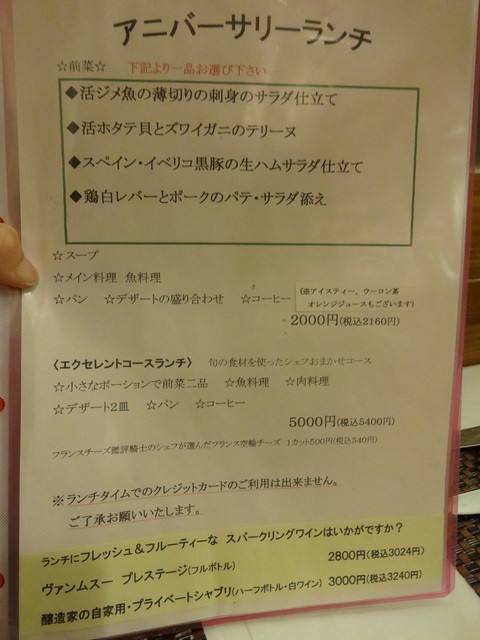 アニバーサリーランチ
☆前菜☆ 下記より一品お選び下さい
◆活ジメ魚の薄切りの刺身のサラダ仕立て
◆活ホタテ貝とズワイガニのテリーヌ
◆スペイン・イベリコ黒豚の生ハムサラダ仕立て
◆鶏白レバーとポークのパテ・サラダ添え
☆スープ
☆メイン料理 魚料理
☆パン ☆デザートの盛り合わせ ☆コーヒー
(※アイスティー、ウーロン茶
オレンジジュースもございます)
2000円(税込2160円)
〈エクセレントコースランチ〉 旬の食材を使ったシェフおまかせコース
☆小さなポーションで前菜二品 ☆魚料理 ☆肉料理
☆デザート2皿 ☆パン ☆コーヒー
5000円(税込5400円)
フランスチーズ鑑評騎士のシェフが選んだフランス空輸チーズ 1カット500円(税込540円)
※ランチタイムでのクレジットカードのご利用は出来ません。
ご了承お願いいたします。
ランチにフレッシュ＆フルーティーな スパークリングワインはいかがですか？
ヴァンムスー プレステージ(フルボトル) 2800円(税込3024円)
醸造家の自家用・プライベートシャブリ(ハーフボトル・白ワイン) 3000円(税込3240円)